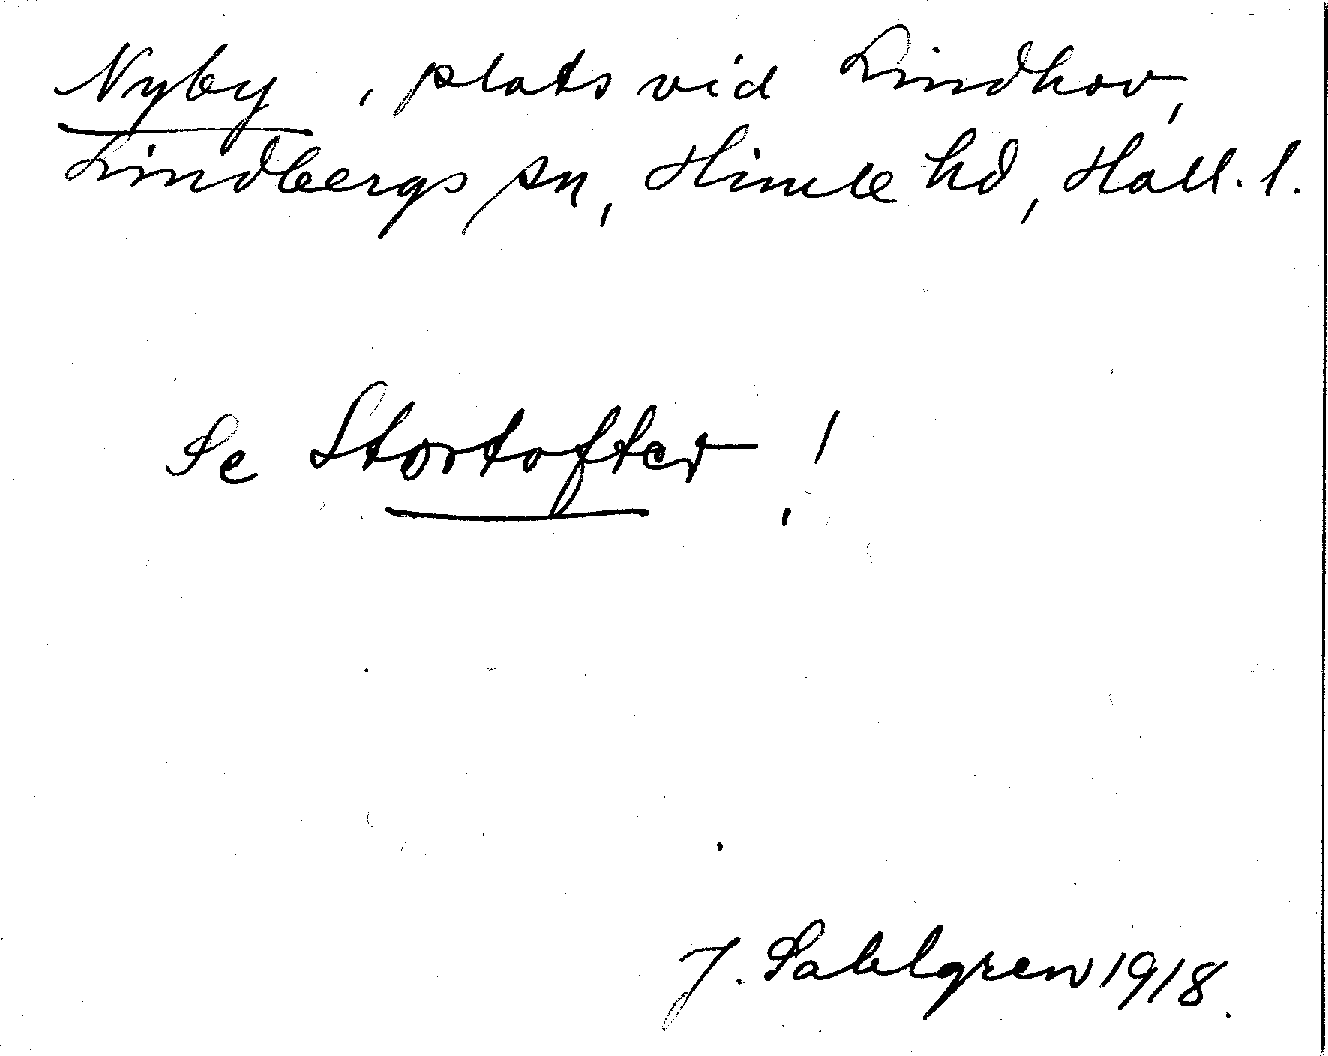 Nyby, plats vid Lindhov,
Lindbergs sn, Himle hd, Hall. l.
Se Stortofter!
J. Sahlgren 1918.